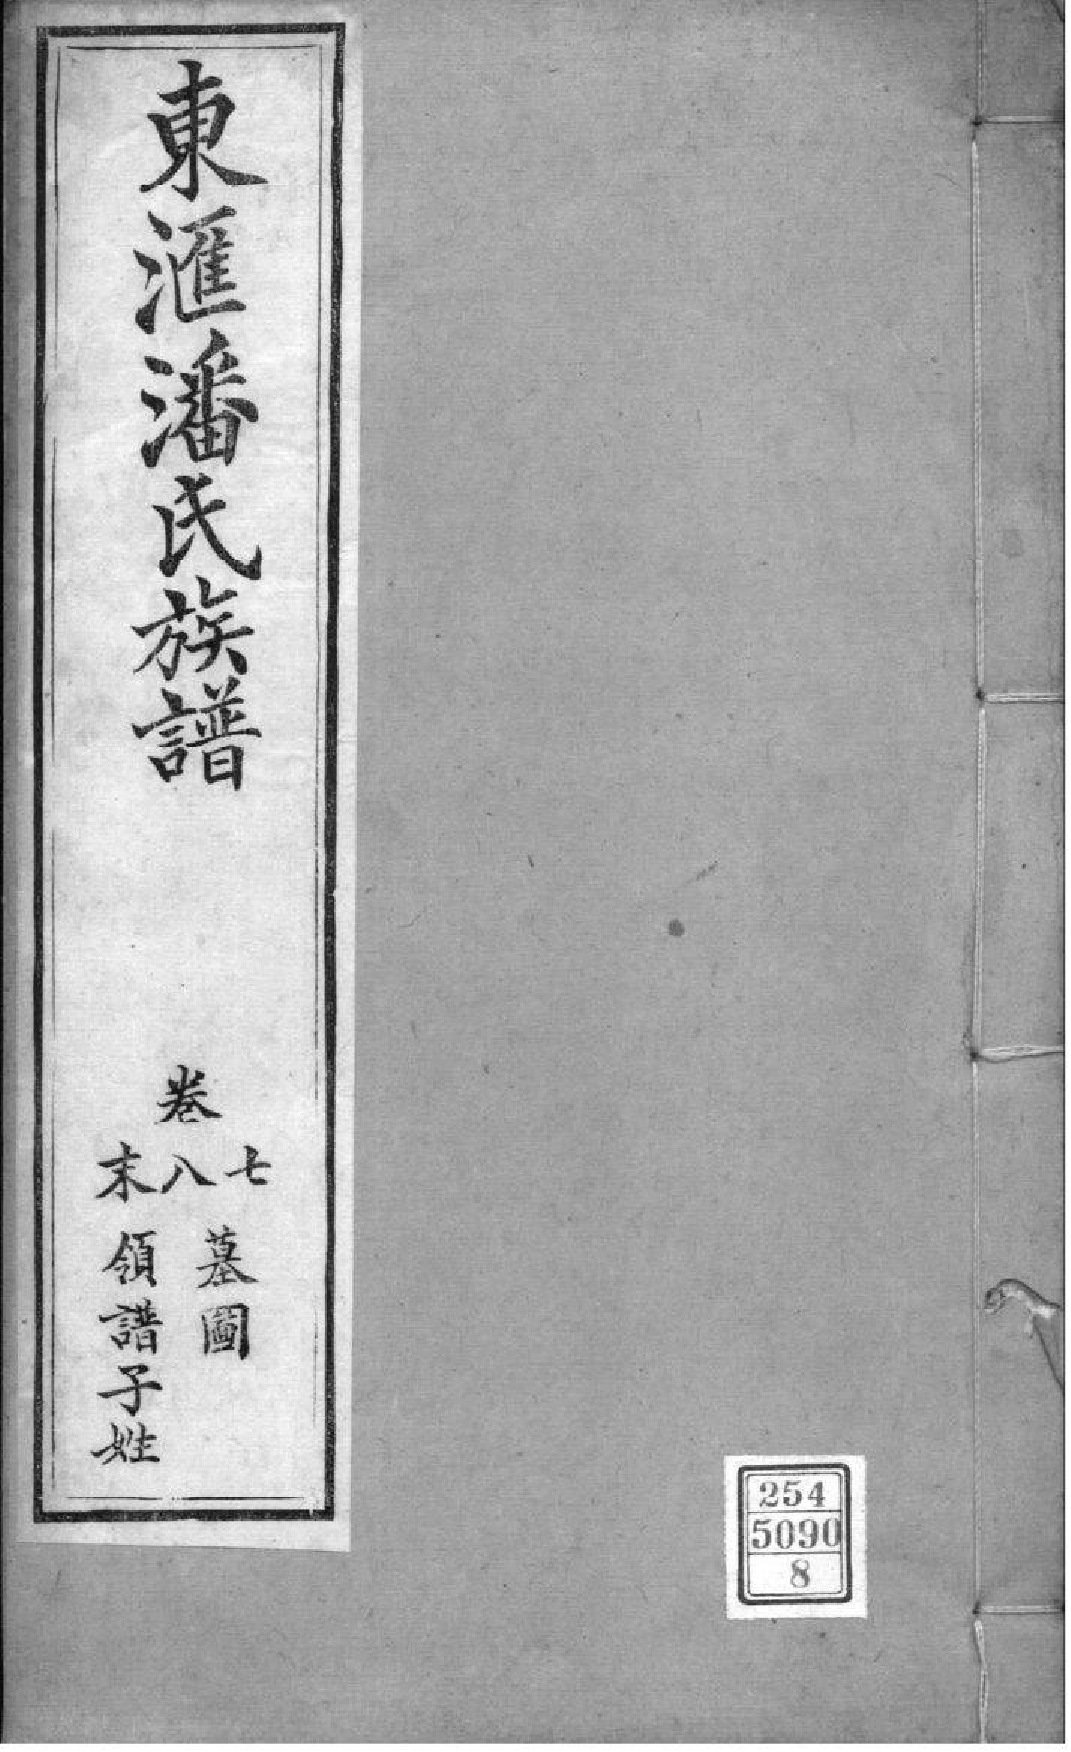 東滙潘氏族譜
卷
七八末
墓圖
領譜子姓
254
5090
8